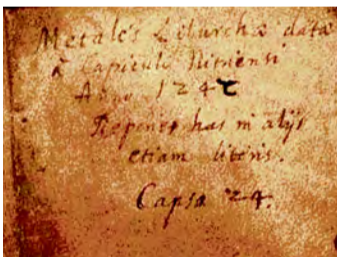 Metales Liturchæ data
à Capituli Nitriensi
Anno 124
Reperies has in alijs
etiam literis.
Capsa 24.